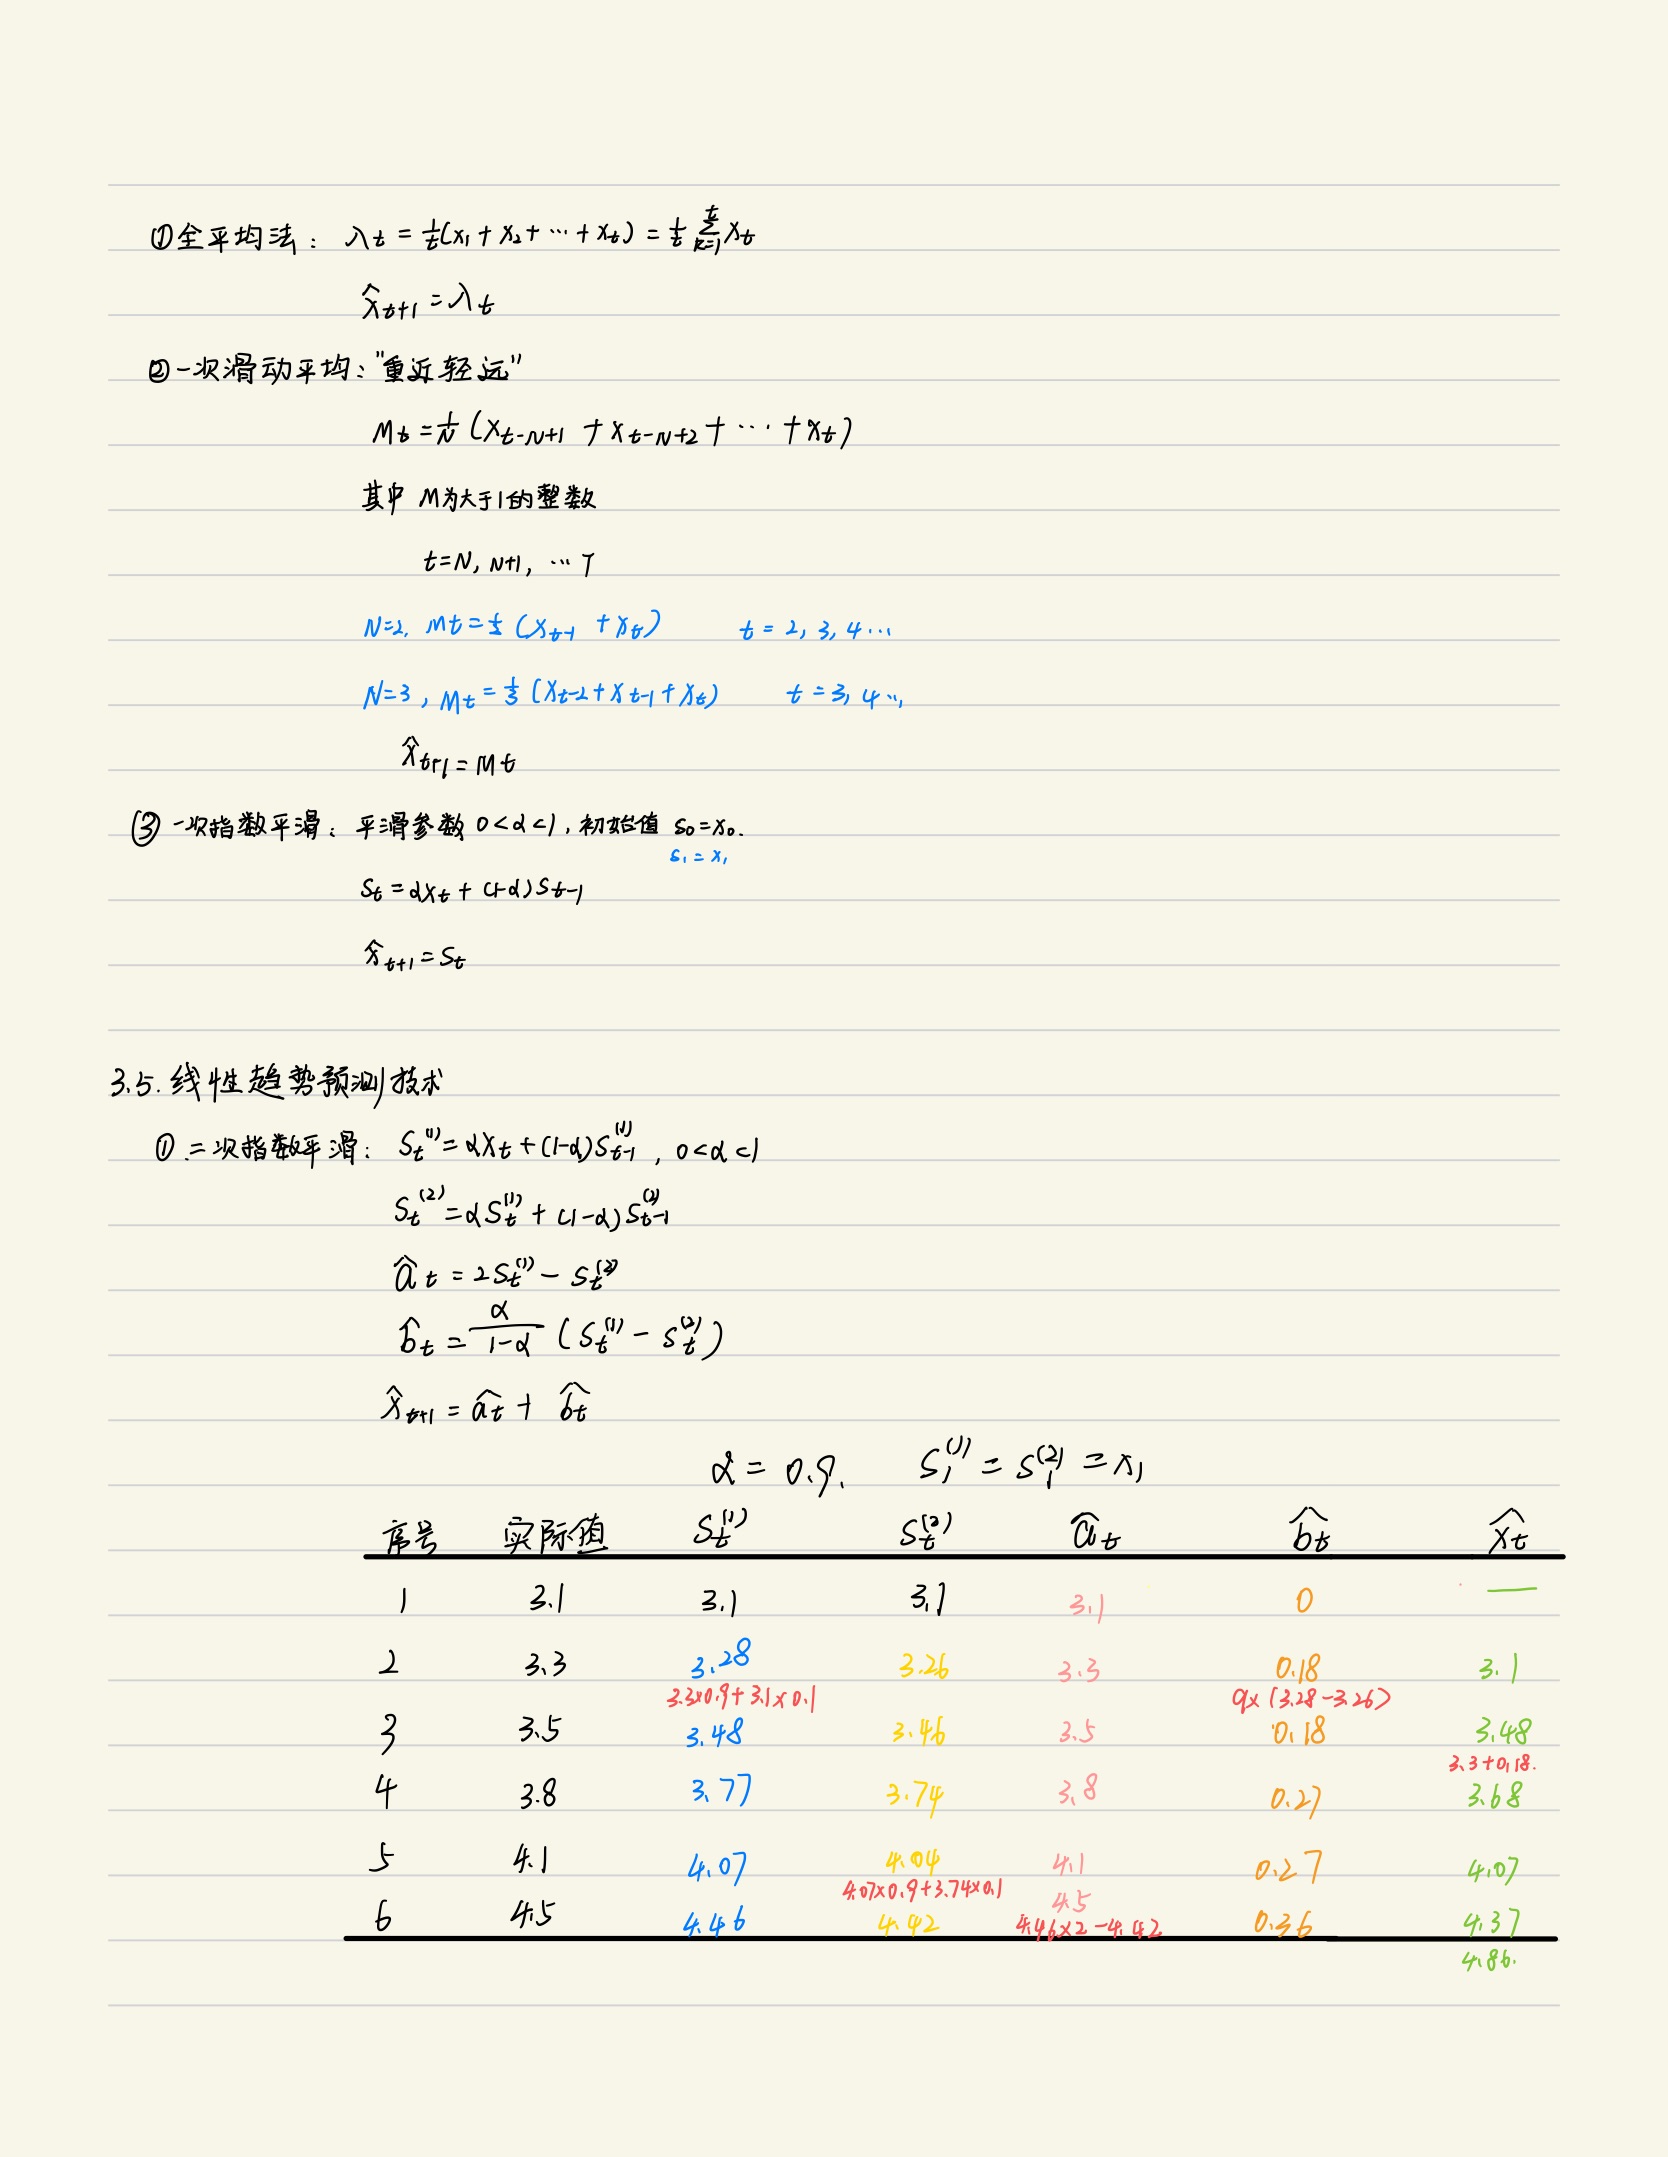 ①全平均法: λt = 1/t(x₁ + x₂ + ⋯ + xt) = 1/t Σ(k=1→t) xt
x̂t+1 = λt
②一次滑动平均:"重近轻远"
Mt = 1/N (xt-N+1 + xt-N+2 + ⋯ + xt)
其中 M为大于1的整数
t=N, N+1, ⋯ T
N=2, Mt = 1/2 (xt-1 + xt) t = 2, 3, 4⋯
N=3, Mt = 1/3 (xt-2 + xt-1 + xt) t = 3, 4⋯
x̂t+1 = Mt
③ 一次指数平滑: 平滑参数 0<α<1, 初始值 s₀=x₀.
s₁ = x₁
St = αxt + (1-α)St-1
x̂t+1 = St
3.5. 线性趋势预测技术
① 二次指数平滑: St⁽¹⁾ = αxt + (1-α)St-1⁽¹⁾, 0<α<1
St⁽²⁾ = αSt⁽¹⁾ + (1-α)St-1⁽²⁾
ât = 2St⁽¹⁾ - St⁽²⁾
b̂t = α/(1-α) (St⁽¹⁾ - St⁽²⁾)
x̂t+1 = ât + b̂t
α = 0.9. S₁⁽¹⁾ = S₁⁽²⁾ = x₁
序号 实际值 St⁽¹⁾ St⁽²⁾ ât b̂t x̂t
1 3.1 3.1 3.1 3.1 0 —
2 3.3 3.28 3.26 3.3 0.18 3.1
3.3×0.9+3.1×0.1 9×(3.28-3.26)
3 3.5 3.48 3.46 3.5 0.18 3.48
3.3+0.18.
4 3.8 3.77 3.74 3.8 0.27 3.68
5 4.1 4.07 4.04 4.1 0.27 4.07
4.07×0.9+3.74×0.1
6 4.5 4.46 4.42 4.5 0.36 4.37
4.46×2-4.42
4.86.